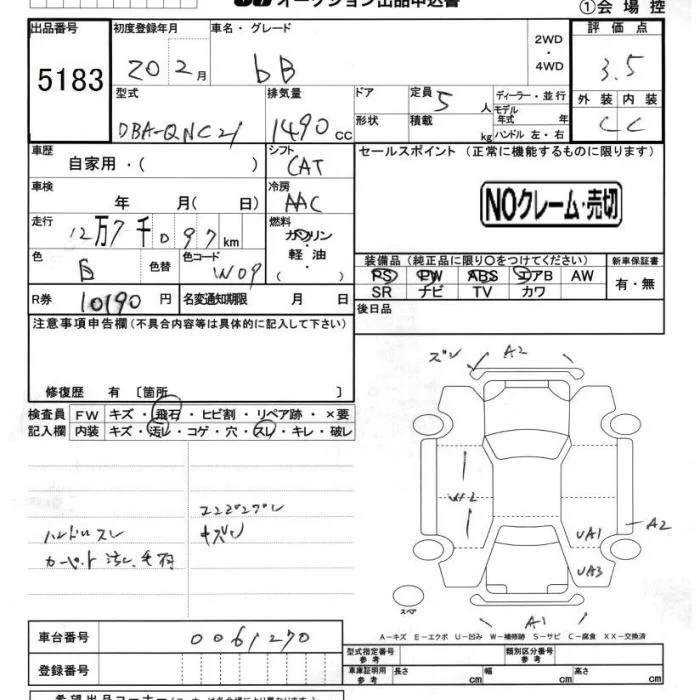 オークション出品申込書
①会場控
出品番号 初度登録年月 車名・グレード 評価点
5183 20 2月 bB 2WD・4WD 3.5
型式 排気量 ドア 定員 5人 ディーラー・並行 外装 内装
DBA-QNC21 1490cc 形状 積載 kg モデル年式 年 ハンドル 左・右 C C
車歴 シフト セールスポイント (正常に機能するものに限ります)
自家用・( ) CAT
車検 冷房
年 月( 日) AAC NOクレーム・売切
走行 燃料
12万7千097km ガソリン
色 色替 色コード 軽油 装備品 (純正品に限り〇をつけてください) 新車保証書
白 W09 ( ) PS PW ABS エアB AW 有・無
R券 10190円 名変通知期限 月 日 SR ナビ TV カワ
注意事項申告欄(不具合内容等は具体的に記入して下さい) 後日品
修復歴 有 〔箇所 〕
検査員 FW キズ・飛石・ヒビ割・リペア跡・×要
記入欄 内装 キズ・汚レ・コゲ・穴・スレ・キレ・破レ
A2
A2
UA1
UA3
A1
スペア
ハンドルスレ
カーペット汚レ
A-キズ E-エクボ U-凹み W-補修跡 S-サビ C-腐食 XX-交換済
車台番号 0061270 型式指定番号 参考 類別区分番号 参考
登録番号 車庫証明用 参考 長さ cm 幅 cm 高さ cm
希望出品コーナー